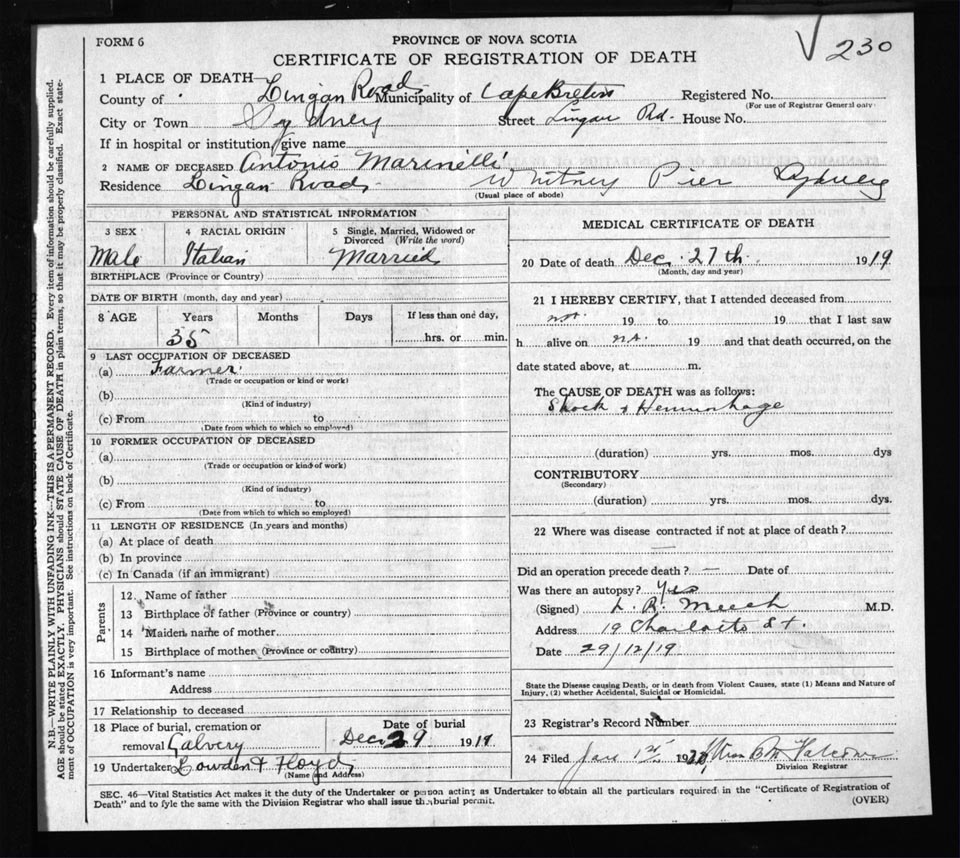 FORM 6
PROVINCE OF NOVA SCOTIA
V 230
CERTIFICATE OF REGISTRATION OF DEATH
1 PLACE OF DEATH—
County of Lingan Road Municipality of Cape Breton Registered No.
(For use of Registrar General only)
City or Town Sydney Street Lingan Rd. House No.
If in hospital or institution, give name
2 NAME OF DECEASED Antonio Marinelli
Residence Lingan Road Whitney Pier Sydney
(Usual place of abode)
PERSONAL AND STATISTICAL INFORMATION
3 SEX 4 RACIAL ORIGIN 5 Single, Married, Widowed or Divorced (Write the word)
Male Italian Married
BIRTHPLACE (Province or Country)
DATE OF BIRTH (month, day and year)
8 AGE Years Months Days If less than one day,
35 hrs. or min.
9 LAST OCCUPATION OF DECEASED
(a) Farmer
(Trade or occupation or kind or work)
(b)
(Kind of industry)
(c) From to
(Date from which to which so employed)
10 FORMER OCCUPATION OF DECEASED
(a)
(Trade or occupation or kind of work)
(b)
(Kind of industry)
(c) From to
(Date from which to which so employed)
11 LENGTH OF RESIDENCE (In years and months)
(a) At place of death
(b) In province
(c) In Canada (if an immigrant)
Parents
12. Name of father
13 Birthplace of father (Province or country)
14 Maiden name of mother
15 Birthplace of mother (Province or country)
16 Informant's name
Address
17 Relationship to deceased
18 Place of burial, cremation or Date of burial
removal Calvery Dec 29 1919
19 Undertaker Lowden & Floyd
(Name and Address)
MEDICAL CERTIFICATE OF DEATH
20 Date of death Dec. 27th. 1919
(Month, day and year)
21 I HEREBY CERTIFY, that I attended deceased from
not 19 to 19 that I last saw
h alive on 19 and that death occurred, on the
date stated above, at m.
The CAUSE OF DEATH was as follows:
Shock & Hemorrhage
(duration) yrs. mos. dys
CONTRIBUTORY
(Secondary)
(duration) yrs. mos. dys.
22 Where was disease contracted if not at place of death?
—
Did an operation precede death? — Date of
Was there an autopsy? Yes
(Signed) L. R. Meech M.D.
Address 19 Charlotte St.
Date 29/12/19
State the Disease causing Death, or in death from Violent Causes, state (1) Means and Nature of
Injury, (2) whether Accidental, Suicidal or Homicidal.
23 Registrar's Record Number
24 Filed Jan 1st 1920
Division Registrar
SEC. 46—Vital Statistics Act makes it the duty of the Undertaker or person acting as Undertaker to obtain all the particulars required in the "Certificate of Registration of
Death" and to fyle the same with the Division Registrar who shall issue the burial permit.
(OVER)
N.B.—WRITE PLAINLY WITH UNFADING INK—THIS IS A PERMANENT RECORD. Every item of information should be carefully supplied.
AGE should be stated EXACTLY. PHYSICIANS should STATE CAUSE OF DEATH in plain terms, so that it may be properly classified. Exact statement of OCCUPATION is very important. See instructions on back of Certificate.